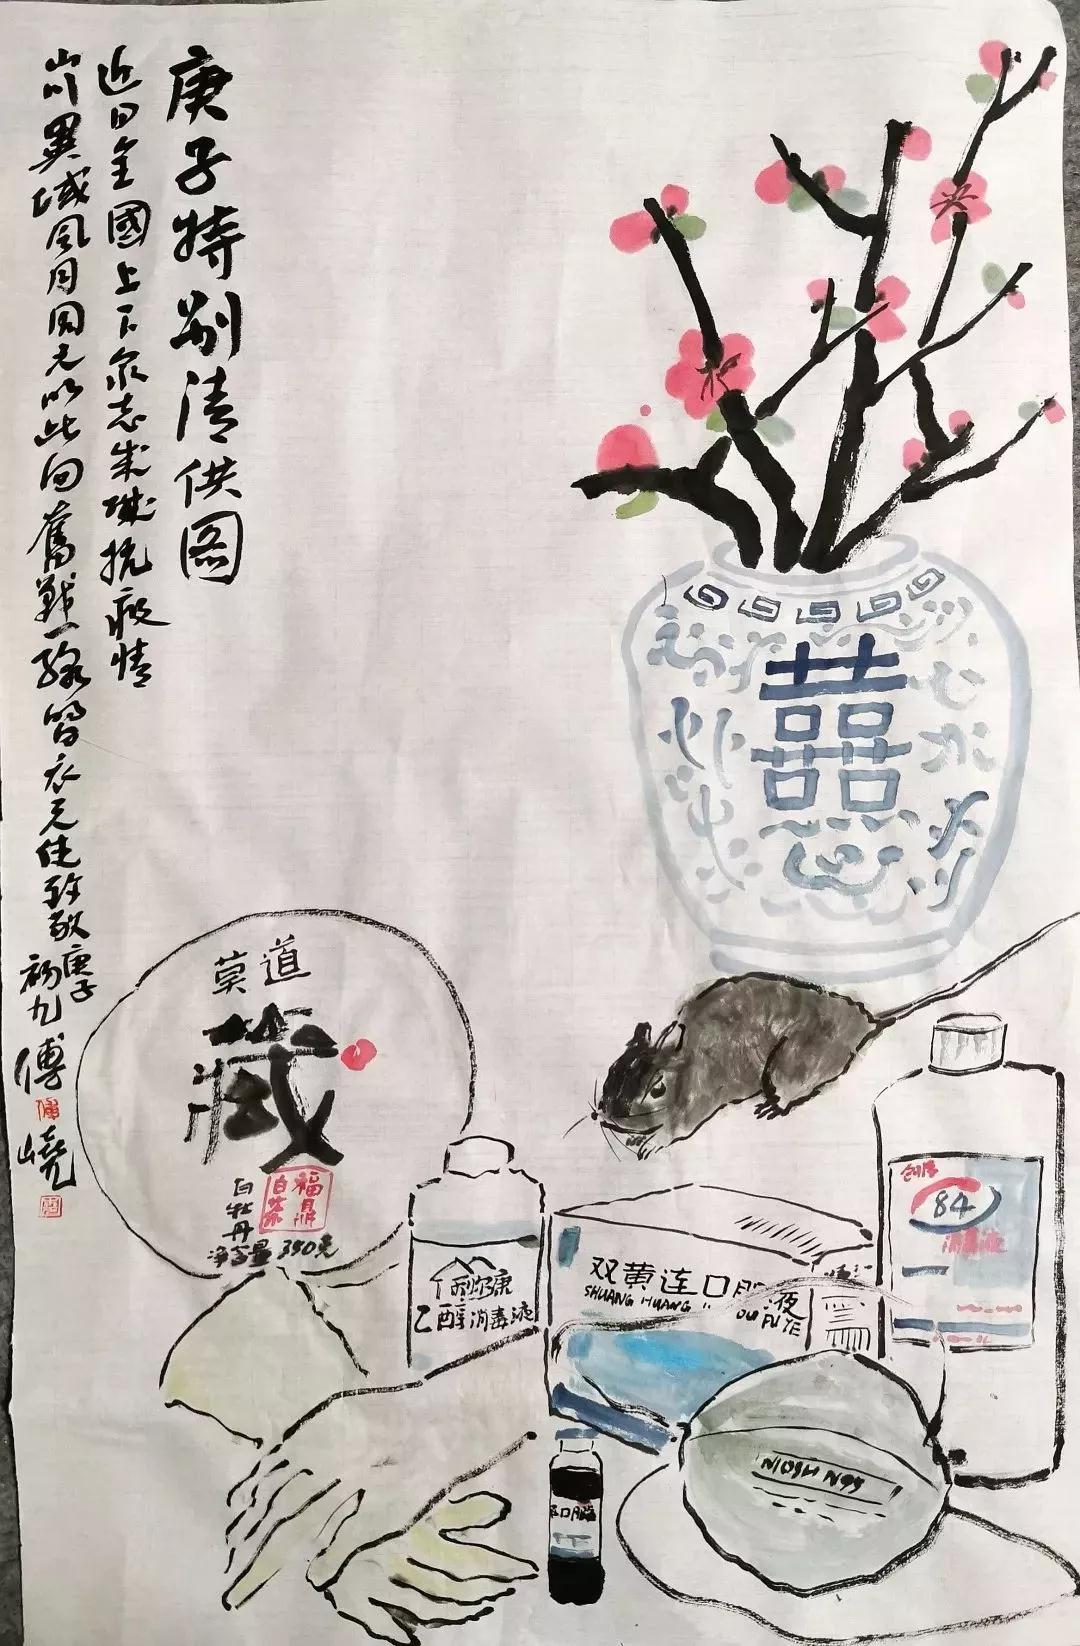 庚子特别清供图
近日全國上下众志成城抗疫情
山川異域风月同天以此向奮戰一線白衣天使致敬庚子
初九傅
傅
嶢
莫道
藏
福鼎
白茶
白牡丹
净含量350克
乙醇消毒液
双黄连口服液
SHUANG HUANG
OU FU YE
84
消毒液
口服液
NIOSH N95